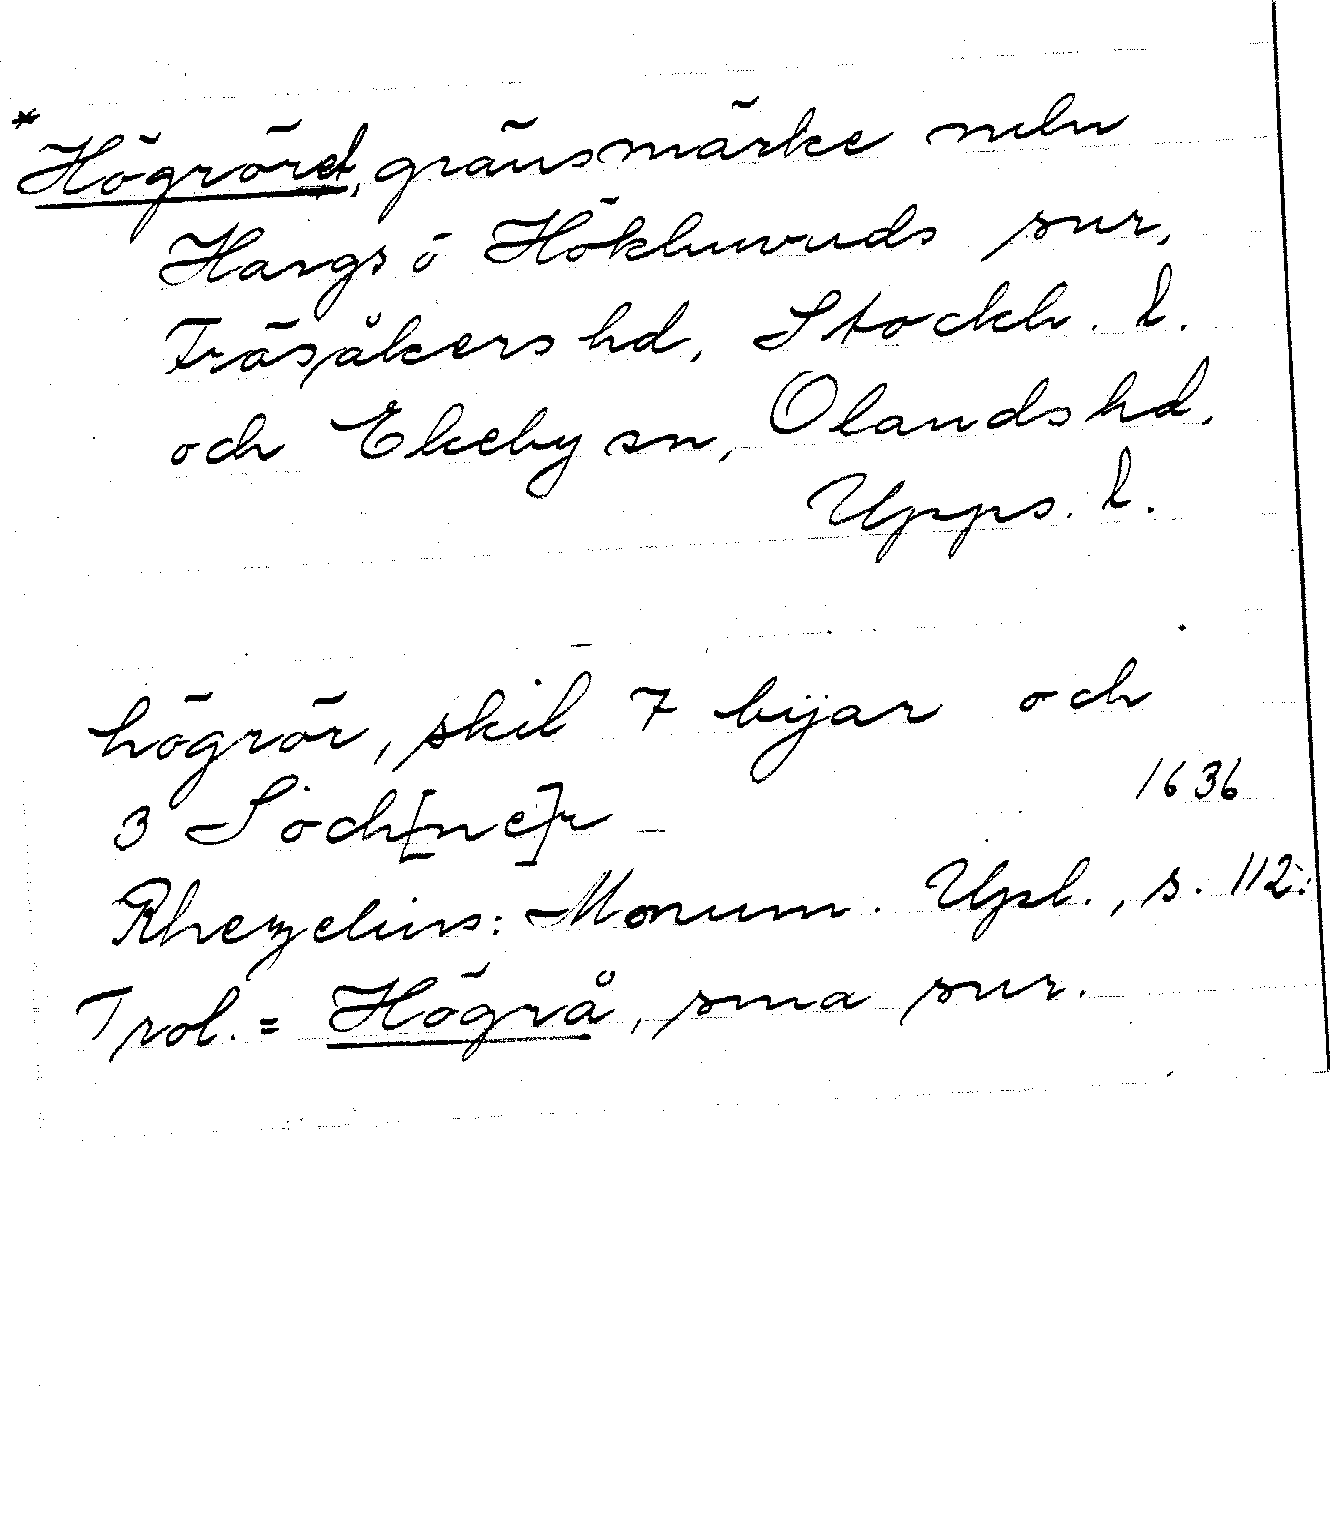 * Högröret, gränsmärke meln
Hargs o Hökhuvuds snr,
Frösåkers hd, Stockh. l.
och Ekeby sn, Olands hd,
Upps. l.
högrör, skil 7 bÿar och
3 Soch[ne]r 1636
Rhezelius: Monum. Upl., s. 112:
Trol. = Högrå, sma snr.